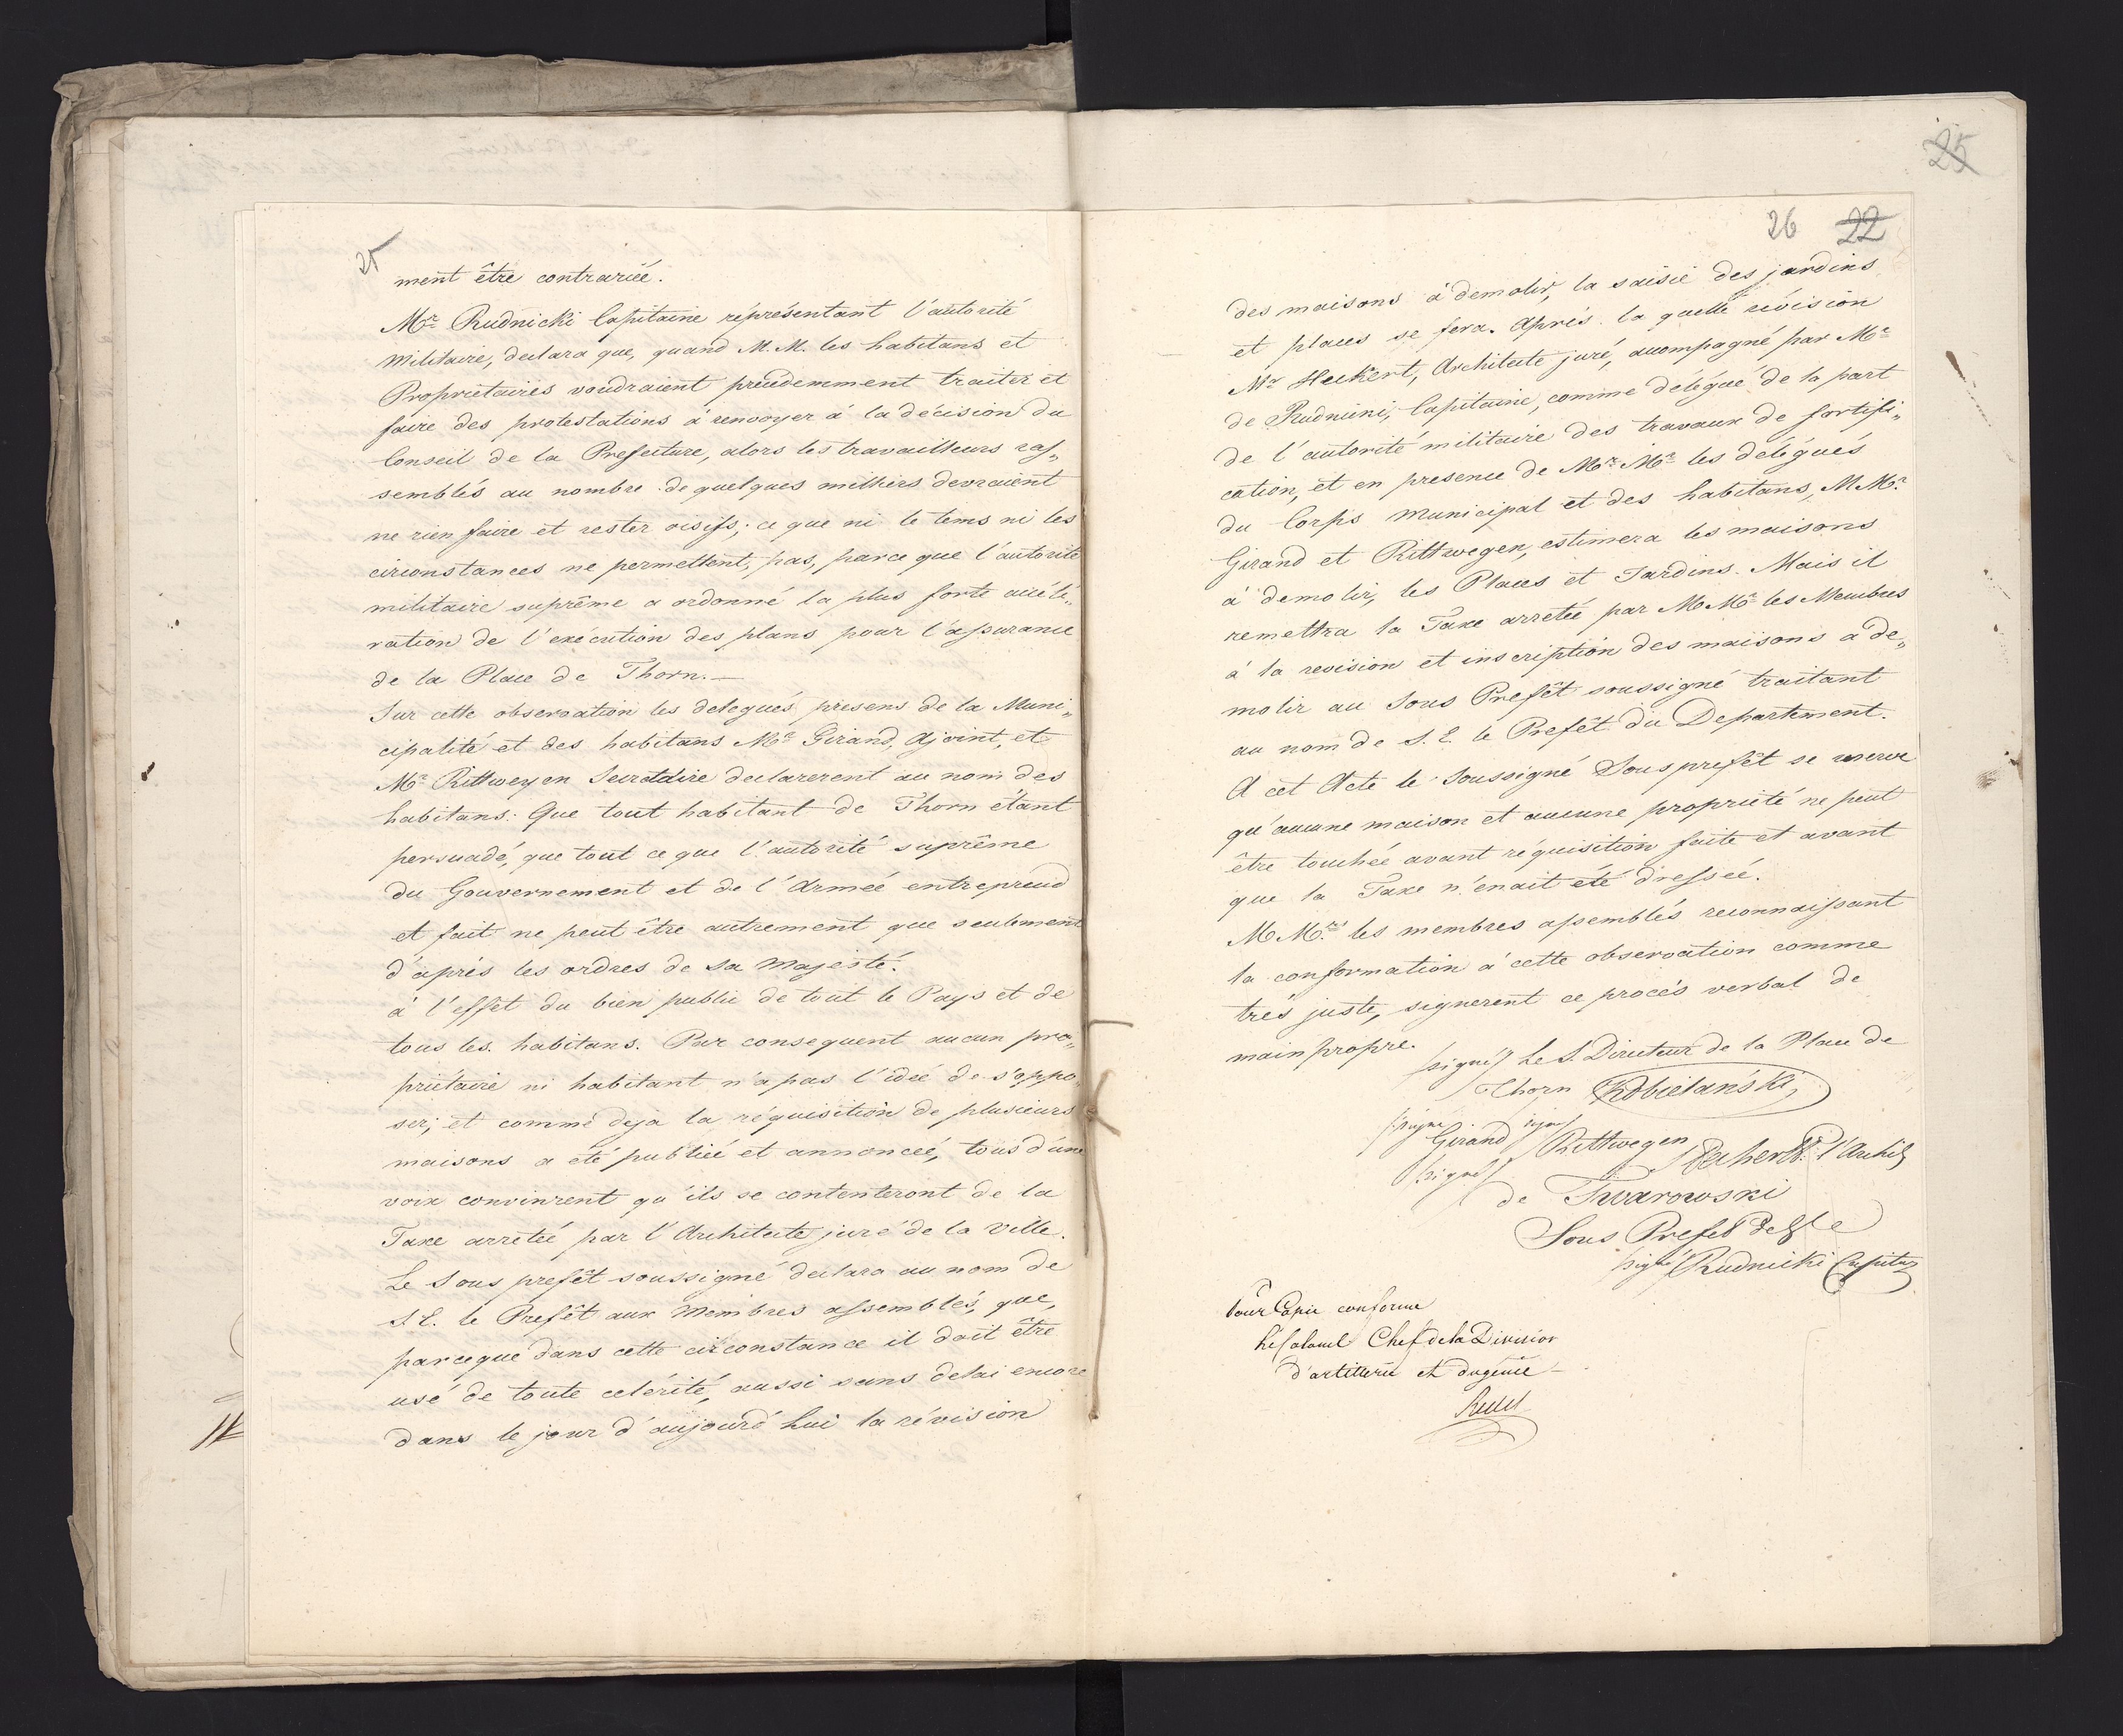 25
ment être contrariée.
Mr Rudnicki Capitaine représentant l'autorité
militaire, declara que, quand M.M. les habitans et
Propriétaires voudraient preudemment traiter et
faire des protestations à renvoyer à la décision du
Conseil de la Prefecture, alors les travailleurs ras„
semblés au nombre de quelques milliers devraient
ne rien faire et rester oisifs; ce que ni le tems ni les
circonstances ne permettent, pas, parce que l'autorité
militaire suprême a ordonné la plus forte accélé„
ration de l'exécution des plans pour l'assurance
de la Place de Thorn.—
Sur cette observation les delegués presens de la Muni„
cipalité et des habitans Mr Girand, Ajoint, et
Mr Rittweyen Secretaire declarerent au nom des
habitans: Que tout habitant de Thorn étant
persuadé, que tout ce que l'autorité suprême
du Gouvernement et de l'Armée entreprend
et fait ne peut être autrement que seulement
d'aprés les ordres de sa Majesté.
à l'effet du bien public de tout le Pays et de
tous les habitans. Par consequent aucun pro„
priétaire ni habitant n'a pas l'idée de s'oppo„
ser; et comme deja la réquisition de plusieurs
maisons a eté publiée et annoncée, tous d'une
voix convinrent qu'ils se contenteront de la
Taxe arretée par l'Architecte juré de la Ville.
Le Sous prefêt soussigné declara au nom de
S. E. le Prefêt aux Membres assemblés, que,
parceque dans cette circonstance il doit être
usé de toute celérité, aussi sans delai encore
dans le jour d'aujourd'hui la révision
25
26 22
des maisons à demolir, la saisie des jardins
et places se fera. Aprés la quelle révision
Mr Heckert, Architecte juré, accompagné par Mr
de Rudnicni, Capitaine, comme délégué de la part
de l'autorité militaire des travaux de fortifi„
cation, et en presence de Mr Mr les délégués
du Corps municipal et des habitans, M Mr.
Girand et Rittwegen, estimera les maisons
à demolir, les Places et Jardins. Mais il
remettra la Taxe arretée par M Mr les Membres
à la revision et inscription des maisons à de„
molir au Sous Prefêt soussigné traitant
au nom de S. E. le Prefêt du Departement.
A cet Acte le Soussigné Sousprefêt se reserve
qu'aucune maison et aucune propriété ne peut
être touchée avant réquisition faite et avant
que la Taxe n'en ait eté dressée.
M Mrs les membres assemblés reconnaissant
la conformation à cette observation comme
trés juste, signerent ce procés verbal de
main propre.
signé/ Le S. Directeur de la Place de
Thorn Kobielański,
signé Girand signé Rittwegen Heckert l'Archit
signé/ de Twarowski
Sous Prefet
signé/ Rudnicki Capitai
Pour Copie conforme
le Colonel Chef de la Division
d'artillerie et du génie